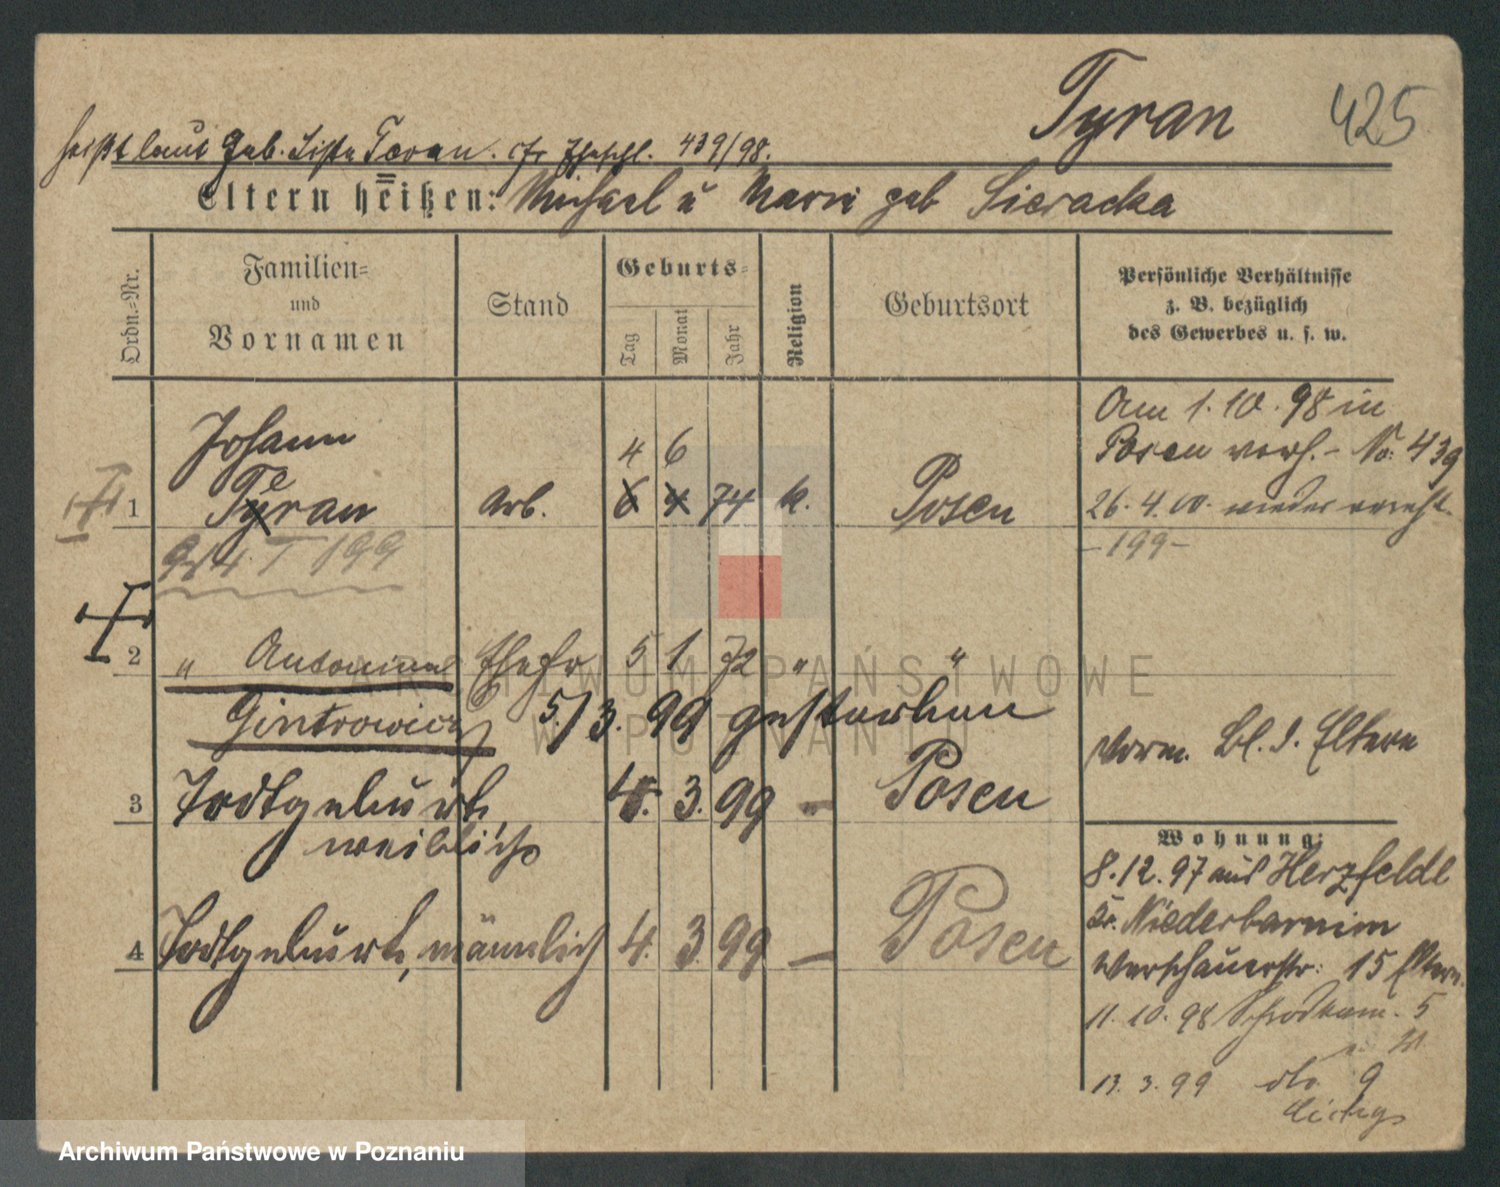 Tyran 425
heißt laut Geb. Liste Teran. cfr Eheschl. 439/98.
Eltern heißen: Michael u Marie geb Sieracka
Ordn.-Nr.
Familien-
und
Vornamen
Stand
Geburts-
Tag
Monat
Jahr
Religion
Geburtsort
Persönliche Verhältnisse
z. B. bezüglich
des Gewerbes u. s. w.
Am 1.10.98 in
Posen verh. - No: 439
26.4.00. wieder verh.
-199-
Johann
4 6
1 Tyran e Arb. 6 4 74 k. Posen
199
2 " Antonina Ehefr 5 1 72 " "
Gintrowicz 5./3. 99 gestorben
vorm. Bl. d. Eltern
3 Todtgeburt, 4. 3. 99 - Posen
weiblich
4 Todtgeburt, männlich 4. 3. 99 - Posen
Wohnung:
8.12.97 aus Herzfelde
Kr. Niederbarnim
Warschauerstr: 15 Eltern.
11.10.98 Schrodkam. 5
13.3.99 do 9
ARCHIWUM PAŃSTWOWE
W POZNANIU
Archiwum Państwowe w Poznaniu